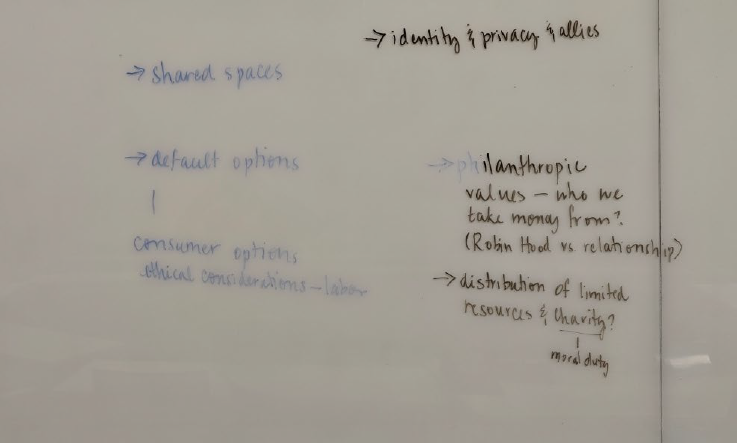 → identity & privacy & allies
→ shared spaces
→ default options
|
consumer options
ethical considerations - labor
→ philanthropic
values - who we
take money from?
(Robin Hood vs. relationship)
→ distribution of limited
resources & charity?
|
moral duty